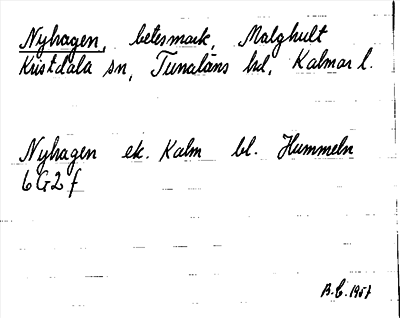 Nyhagen, betesmark, Malghult
Kristdala sn, Tunaläns hd, Kalmar l.
Nyhagen ek. Kalm bl. Hummeln
6G2f
B.C. 1957